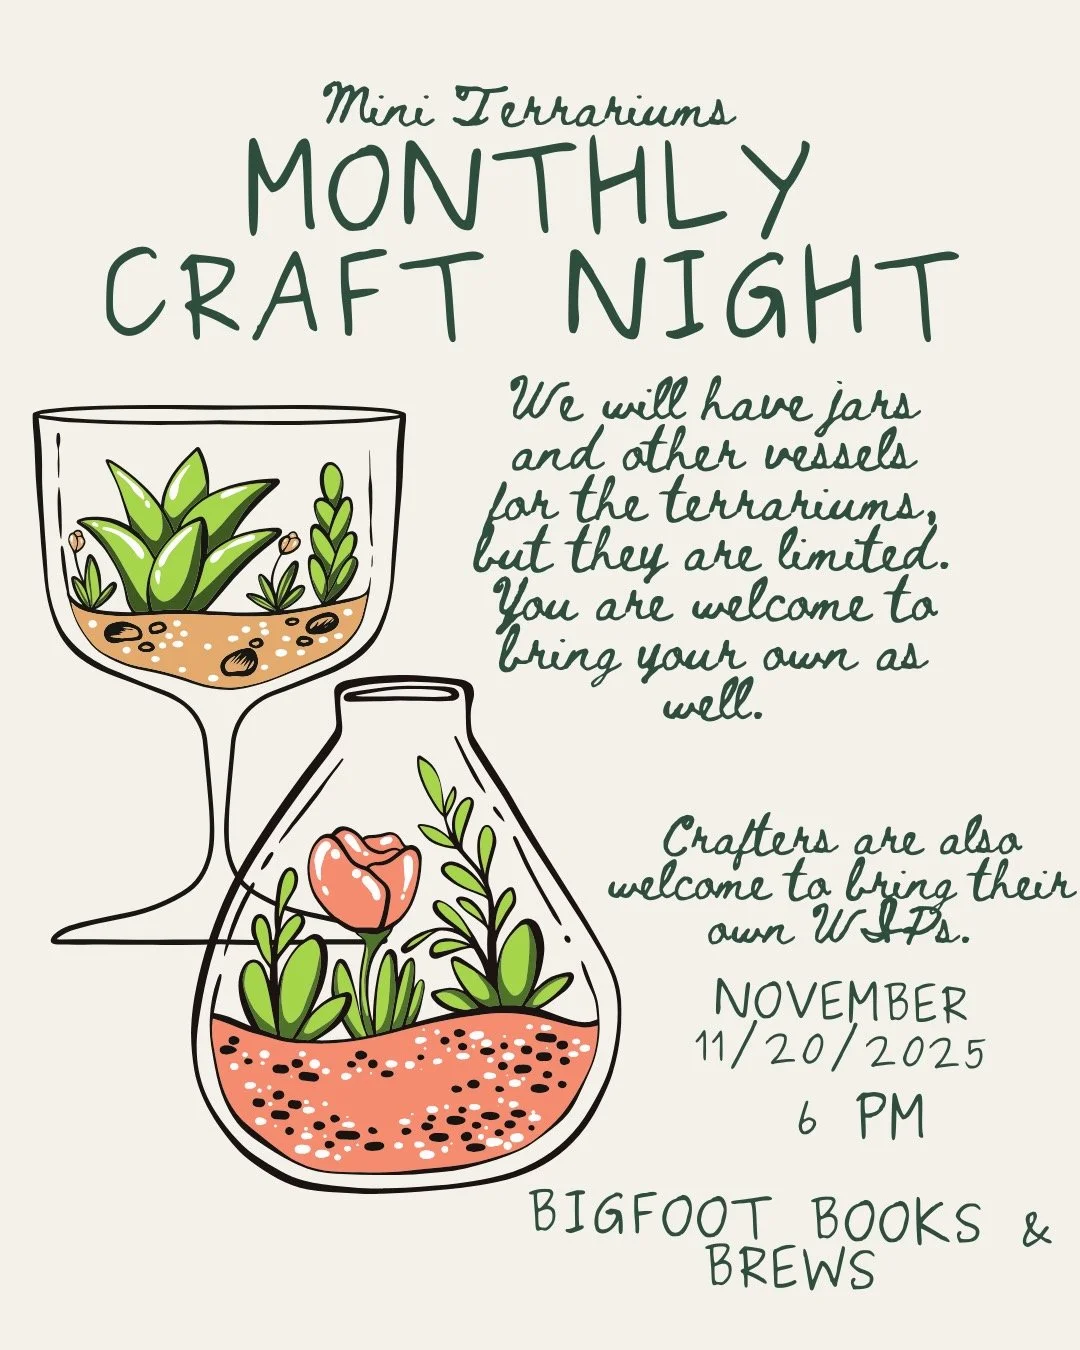 Mini Terrariums
MONTHLY
CRAFT NIGHT
We will have jars
and other vessels
for the terrariums,
but they are limited.
You are welcome to
bring your own as
well.
Crafters are also
welcome to bring their
own WIPs.
NOVEMBER
11/20/2025
6 PM
BIGFOOT BOOKS &
BREWS